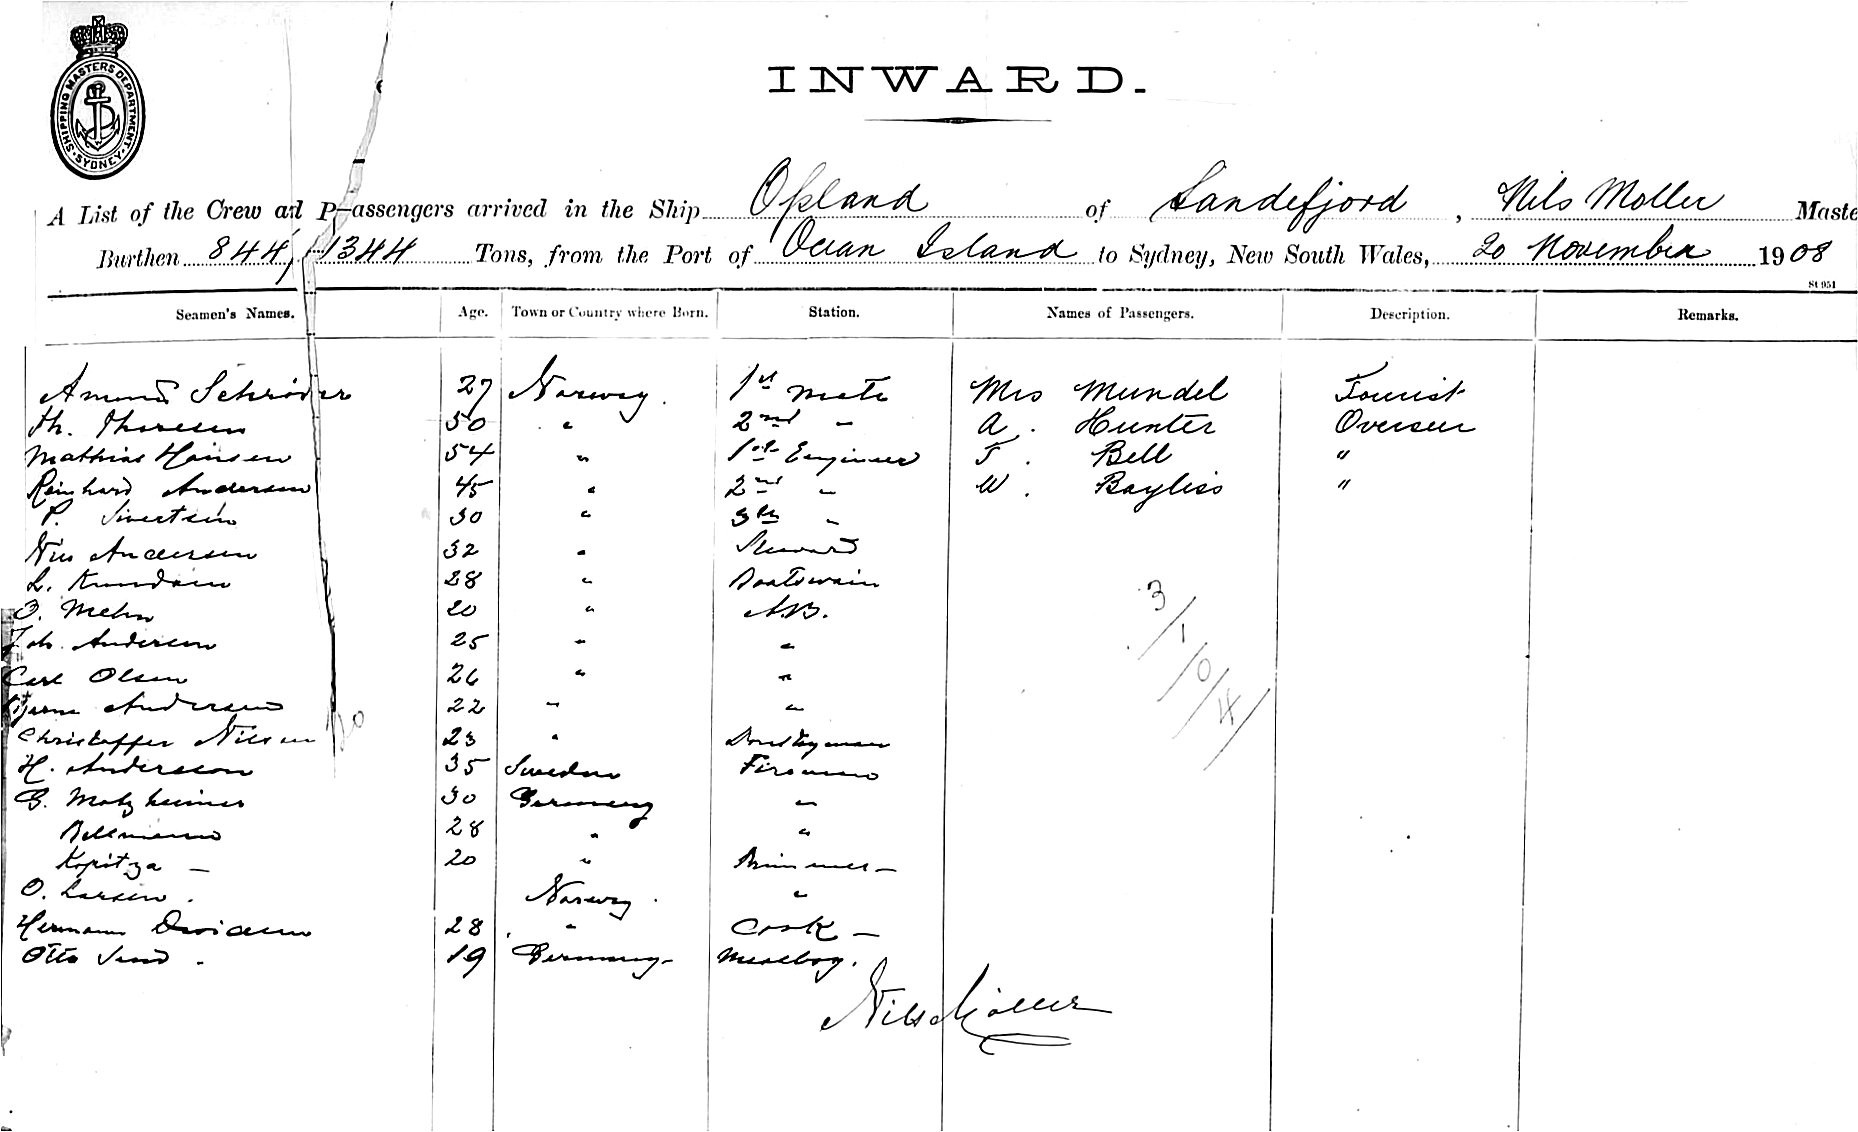 SHIPPING MASTERS DEPARTMENT · SYDNEY ·
INWARD.
A List of the Crew and Passengers arrived in the Ship Opland of Sandefjord, Nils Moller Maste
Burthen 844/1344 Tons, from the Port of Ocean Island to Sydney, New South Wales, 20 November 1908
St 951
Seamen's Names. Age. Town or Country where Born. Station. Names of Passengers. Description. Remarks.
Amund Schröder 27 Norway. 1st Mate Mrs Mundel Tourist
Th. Thoresen 50 " 2nd " A. Hunter Overseer
Mathias Hansen 54 " 1st Engineer F. Bell "
Reinhard Andersen 45 " 2nd " W. Bayliss "
P. Sivertsen 30 " 3th "
Nils Andersen 32 " Steward
L. Knudsen 28 " Boatswain
O. Mehn 20 " A.B.
Joh. Andersen 25 " "
Carl Olsen 26 " "
Bjarne Andersen 22 " "
Christoffer Nilsen 23 " Donkeyman
H. Andersson 35 Sweden Fireman
G. 30 Germany "
Bellmann 28 " "
Kopitza — 20 " Trimmer —
O. Larsen. Norway. "
Hermann 28 " Cook —
Otto 19 Germany - Messboy.
Nils Möller
3/1/0/4/
20